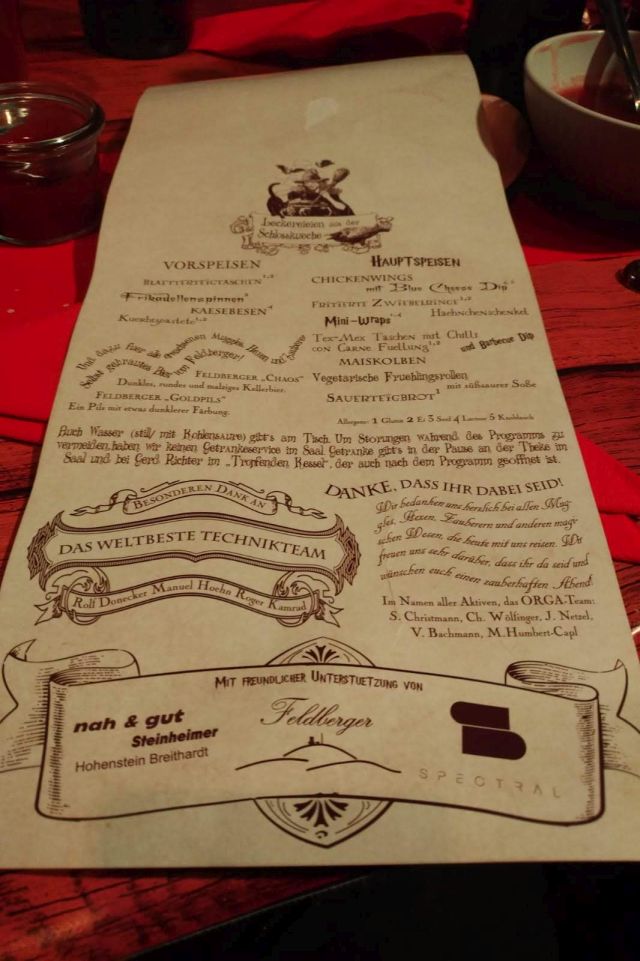 Leckereien aus der
Schlossküche
VORSPEISEN
BLAETTERTEIGTASCHEN1,2
Frikadellenspinnen2
KAESEBESEN4
Kuerbispastete1,2
Und dazu fuer alle erwachsenen Muggles, Hexen und Zauberer
Selbst gebrautes Bier vom Feldberger!
FELDBERGER „CHAOS“
Dunkles, rundes und malziges Kellerbier.
FELDBERGER „GOLDPILS“
Ein Pils mit etwas dunklerer Färbung.
HAUPTSPEISEN
CHICKENWINGS
mit Blue Cheese Dip
FRITIERTE ZWIEBELRINGE1,2
Mini-Wraps1,4
Haehnchenschenkel
TEX-MEX TASCHEN MIT CHILLI
CON CARNE FUELLUNG1,2
und Barbecue Dip
MAISKOLBEN
Vegetarische Fruehlingsrollen
mit süßsaurer Soße
SAUERTEIGBROT1
Allergene: 1 Gluten 2 Ei 3 Senf 4 Lactose 5 Knoblauch
Auch Wasser (still/ mit Kohlensaure) gibt's am Tisch. Um Storungen wahrend des Programms zu
vermeiden, haben wir keinen Getrankeservice im Saal. Getranke gibt's in der Pause an der Theke im
Saal und bei Gerd Richter im „Tropfenden Kessel“, der auch nach dem Programm geoffnet ist.
BESONDEREN DANK AN
DAS WELTBESTE TECHNIKTEAM
Rolf Donecker Manuel Hoehn Roger Kamrad
DANKE, DASS IHR DABEI SEID!
Wir bedanken uns herzlich bei allen Mug-
gles, Hexen, Zauberern und anderen magi-
schen Wesen, die heute mit uns reisen. Wir
freuen uns sehr darüber, dass ihr da seid und
wünschen euch einen zauberhaften Abend.
Im Namen aller Aktiven, das ORGA-Team:
S. Christmann, Ch. Wölfinger, J. Netzel,
V. Bachmann, M.Humbert-Capl
MIT FREUNDLICHER UNTERSTUETZUNG VON
nah & gut
Steinheimer
Hohenstein Breithardt
Feldberger
SPECTRAL